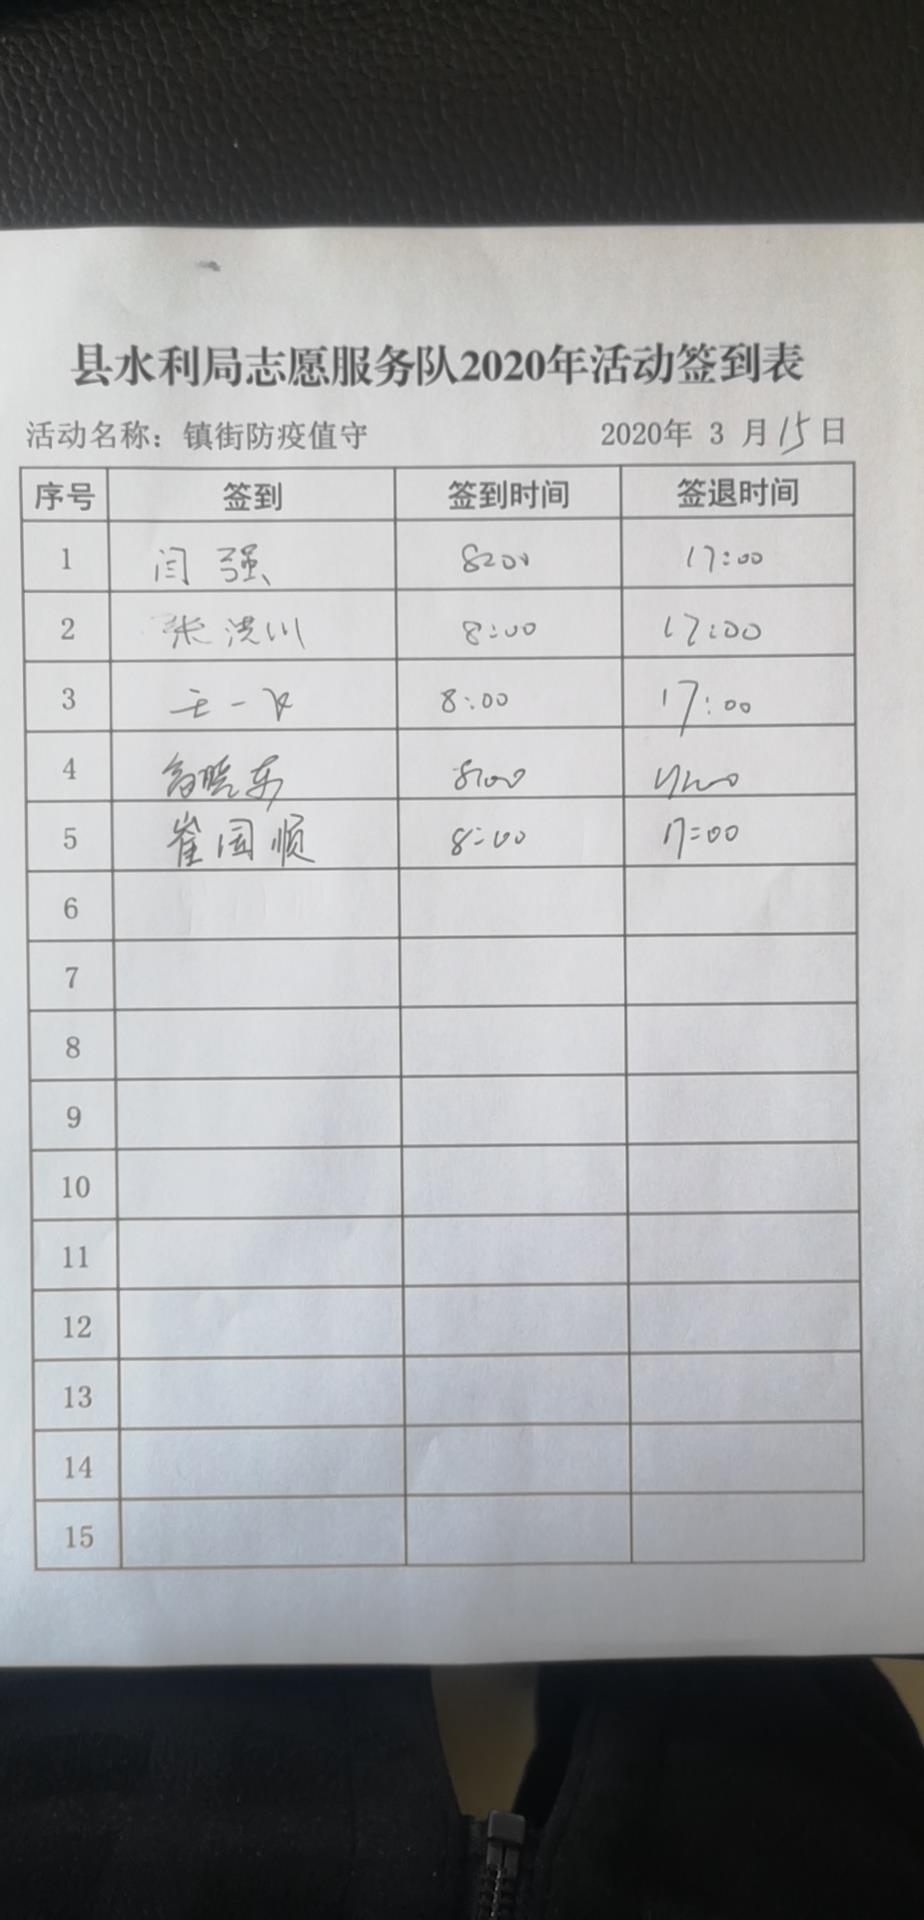 县水利局志愿服务队2020年活动签到表
活动名称：镇街防疫值守 2020年 3 月 15 日
序号 签到 签到时间 签退时间
1 闫强 8:00 17:00
2 张洪川 8:00 17:00
3 王一飞 8:00 17:00
4 晓东 8:00 17:00
5 崔国顺 8:00 17:00
6
7
8
9
10
11
12
13
14
15